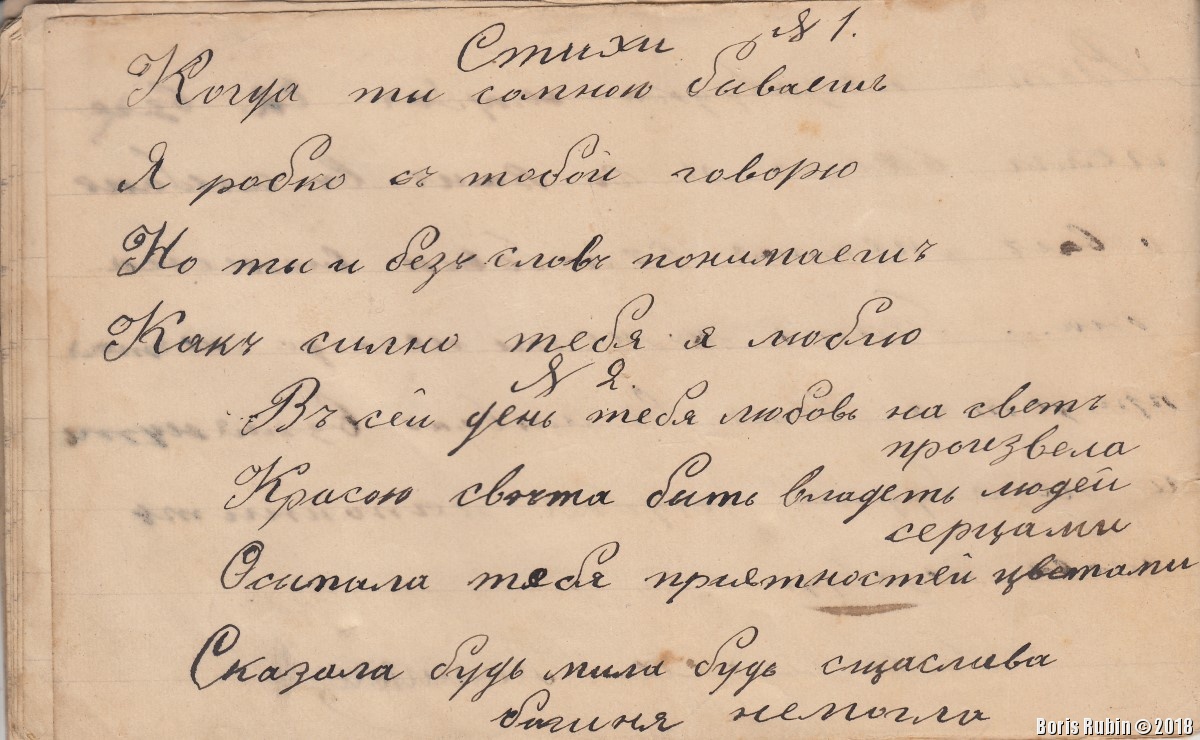 Стихи № 1.
Когда ты сомною бываешъ
Я робко съ тобой говорю
Но ты и безъ словъ понимаешъ
Какъ силно тебя я люблю
№ 2.
Въ сей день тебя любовь на светъ
произвела
Красою света быть владеть людей
серцами
Осыпала тебя приятностей цветами
Сказала будь мила будь сщаслива
богиня немогла
Boris Rubin © 2018